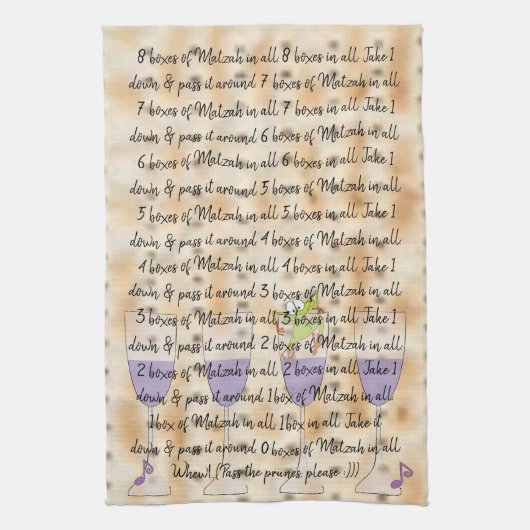 8 boxes of Matzah in all 8 boxes in all Take 1
down & pass it around 7 boxes of Matzah in all
7 boxes of Matzah in all 7 boxes in all Take 1
down & pass it around 6 boxes of Matzah in all.
6 boxes of Matzah in all 6 boxes in all Take 1
down & pass it around 5 boxes of Matzah in all
5 boxes of Matzah in all 5 boxes in all Take 1
down & pass it around 4 boxes of Matzah in all
4 boxes of Matzah in all 4 boxes in all Take 1
down & pass it around 3 boxes of Matzah in all
3 boxes of Matzah in all 3 boxes in all Take 1
down & pass it around. 2 boxes of Matzah in all
2 boxes of Matzah in all 2 boxes in all Take 1
down & pass it around. 1 box of Matzah in all.
1 box of Matzah in all. 1 box in all. Take it
down & pass it around 0 boxes of Matzah in all.
Whew! (Pass the prunes, please :)))